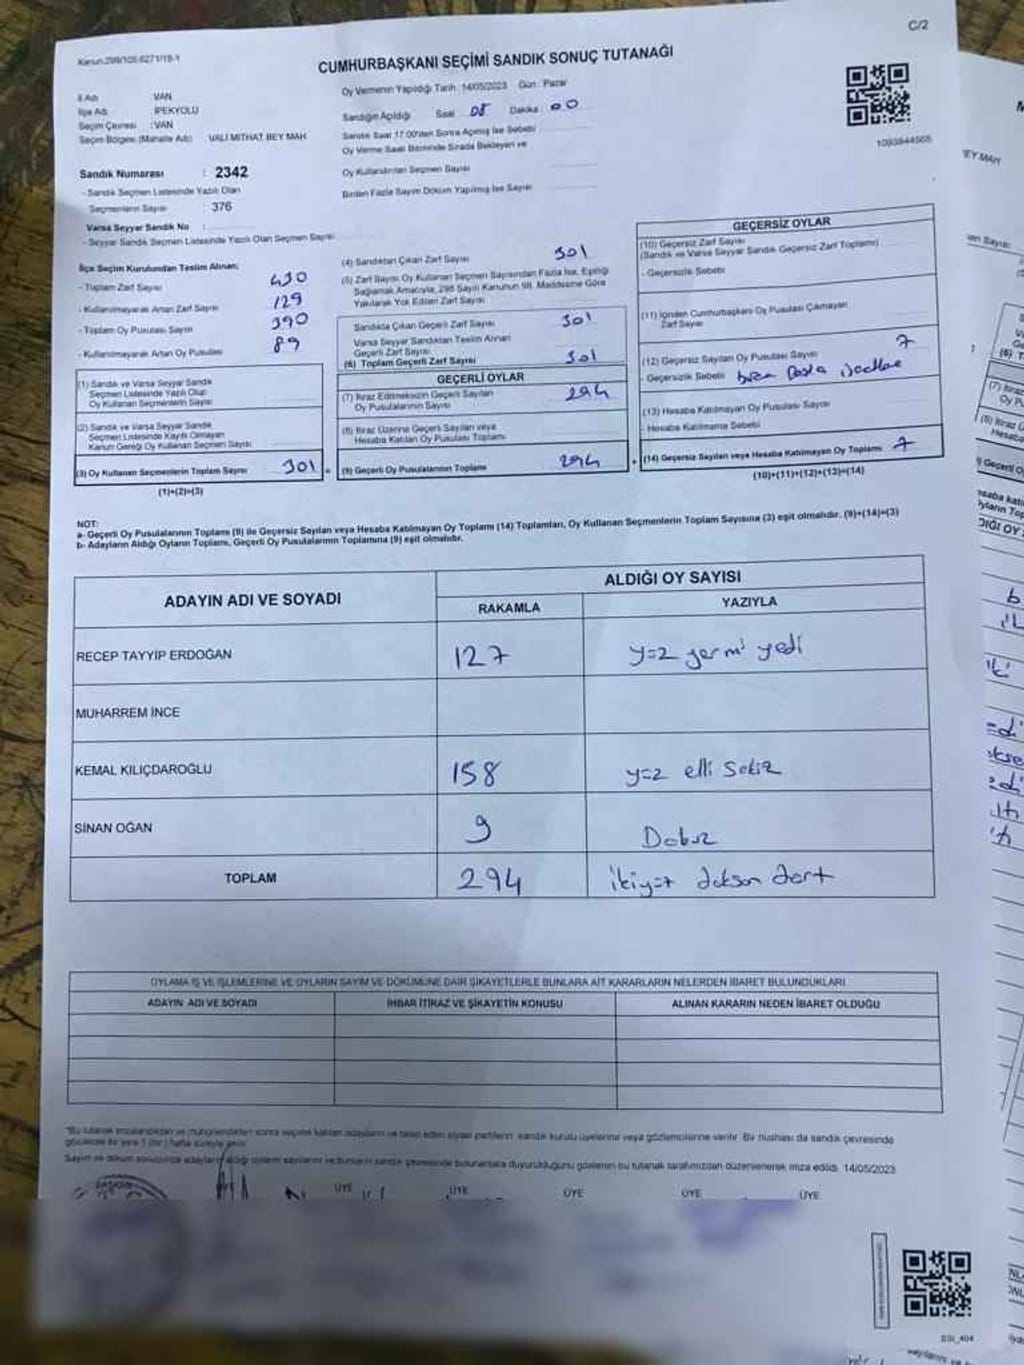 C/2
Kanun.298/105.6271/18-1
CUMHURBAŞKANI SEÇİMİ SANDIK SONUÇ TUTANAĞI
İl Adı VAN
İlçe Adı İPEKYOLU
Seçim Çevresi : VAN
Seçim Bölgesi (Mahalle Adı) VALİ MİTHAT BEY MAH
Sandık Numarası : 2342
- Sandık Seçmen Listesinde Yazılı Olan
Seçmenlerin Sayısı : 376
Varsa Seyyar Sandık No :
- Seyyar Sandık Seçmen Listesinde Yazılı Olan Seçmen Sayısı
Oy Vermenin Yapıldığı Tarih : 14/05/2023 Gün : Pazar
Sandığın Açıldığı Saat 08 Dakika : 00
Sandık Saat 17:00'den Sonra Açılmış İse Sebebi
Oy Verme Saati Bitiminde Sırada Bekleyen ve
Oy Kullandırılan Seçmen Sayısı
Birden Fazla Sayım Döküm Yapılmış İse Sayısı
1093844565
İlçe Seçim Kurulundan Teslim Alınan;
- Toplam Zarf Sayısı 430
- Kullanılmayarak Artan Zarf Sayısı 129
- Toplam Oy Pusulası Sayısı 390
- Kullanılmayarak Artan Oy Pusulası 89
(1) Sandık ve Varsa Seyyar Sandık
Seçmen Listesinde Yazılı Olup
Oy Kullanan Seçmenlerin Sayısı
(2) Sandık ve Varsa Seyyar Sandık
Seçmen Listesinde Kayıtlı Olmayan
Kanun Gereği Oy Kullanan Seçmen Sayısı
(3) Oy Kullanan Seçmenlerin Toplam Sayısı 301
(1)+(2)=(3)
(4) Sandıktan Çıkan Zarf Sayısı 301
(5) Zarf Sayısı Oy Kullanan Seçmen Sayısından Fazla İse, Eşitliği
Sağlamak Amacıyla, 298 Sayılı Kanunun 98. Maddesine Göre
Yakılarak Yok Edilen Zarf Sayısı
Sandıkta Çıkan Geçerli Zarf Sayısı 301
Varsa Seyyar Sandıktan Teslim Alınan
Geçerli Zarf Sayısı
(6) Toplam Geçerli Zarf Sayısı 301
GEÇERLİ OYLAR
(7) İtiraz Edilmeksizin Geçerli Sayılan
Oy Pusulalarının Sayısı 294
(8) İtiraz Üzerine Geçerli Sayılan veya
Hesaba Katılan Oy Pusulası Toplamı
(9) Geçerli Oy Pusulalarının Toplamı 294
GEÇERSİZ OYLAR
(10) Geçersiz Zarf Sayısı
(Sandık ve Varsa Seyyar Sandık Geçersiz Zarf Toplamı)
- Geçersizlik Sebebi
(11) İçinden Cumhurbaşkanı Oy Pusulası Çıkmayan
Zarf Sayısı
(12) Geçersiz Sayılan Oy Pusulası Sayısı 7
- Geçersizlik Sebebi
(13) Hesaba Katılmayan Oy Pusulası Sayısı
- Hesaba Katılmama Sebebi
(14) Geçersiz Sayılan veya Hesaba Katılmayan Oy Toplamı 7
(10)+(11)+(12)+(13)=(14)
NOT:
a- Geçerli Oy Pusulalarının Toplamı (9) ile Geçersiz Sayılan veya Hesaba Katılmayan Oy Toplamı (14) Toplamları, Oy Kullanan Seçmenlerin Toplam Sayısına (3) eşit olmalıdır. (9)+(14)=(3)
b- Adayların Aldığı Oyların Toplamı, Geçerli Oy Pusulalarının Toplamına (9) eşit olmalıdır.
ADAYIN ADI VE SOYADI ALDIĞI OY SAYISI
RAKAMLA YAZIYLA
RECEP TAYYİP ERDOĞAN 127 yüz yermi yedi
MUHARREM İNCE
KEMAL KILIÇDAROĞLU 158 yüz elli sekiz
SİNAN OĞAN 9 Dokuz
TOPLAM 294 ikiyüz doksan dört
OYLAMA İŞ VE İŞLEMLERİNE VE OYLARIN SAYIM VE DÖKÜMÜNE DAİR ŞİKAYETLERLE BUNLARA AİT KARARLARIN NELERDEN İBARET BULUNDUKLARI
ADAYIN ADI VE SOYADI İHBAR İTİRAZ VE ŞİKAYETİN KONUSU ALINAN KARARIN NEDEN İBARET OLDUĞU
*Bu tutanak imzalandıktan ve mühürlendikten sonra seçime katılan adayların ve talep eden siyasi partilerin sandık kurulu üyelerine veya gözlemcilerine verilir. Bir nüshası da sandık çevresinde
görülecek bir yere 1 (bir) hafta süreyle asılır.
Sayım ve döküm sonucunda adayların aldığı oyların sayılarını ve bunların sandık çevresinde bulunanlara duyurulduğunu gösteren bu tutanak tarafımızdan düzenlenerek imza edildi. 14/05/2023
BAŞKAN ÜYE ÜYE ÜYE ÜYE ÜYE